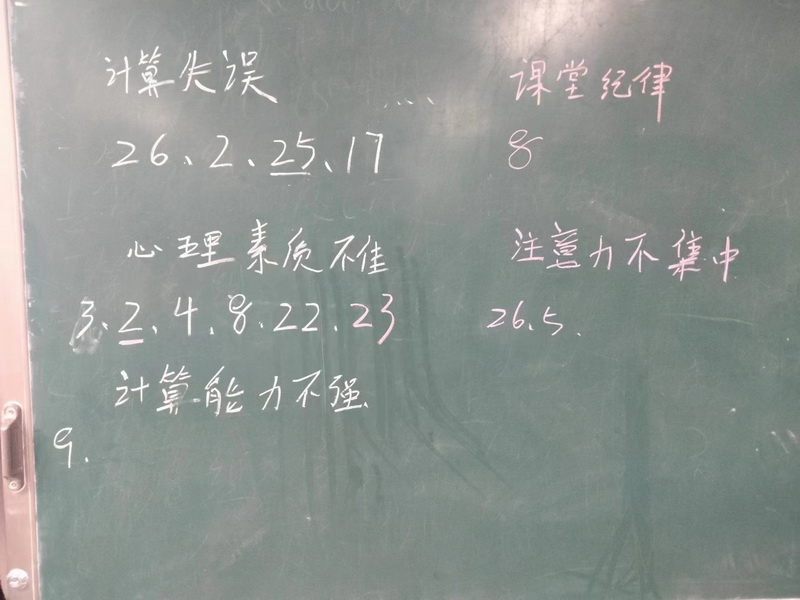 计算失误
26、2、25、17
心理素质不佳
3、2、4、8、22、23
计算能力不强
9.
课堂纪律
8
注意力不集中
26、5、